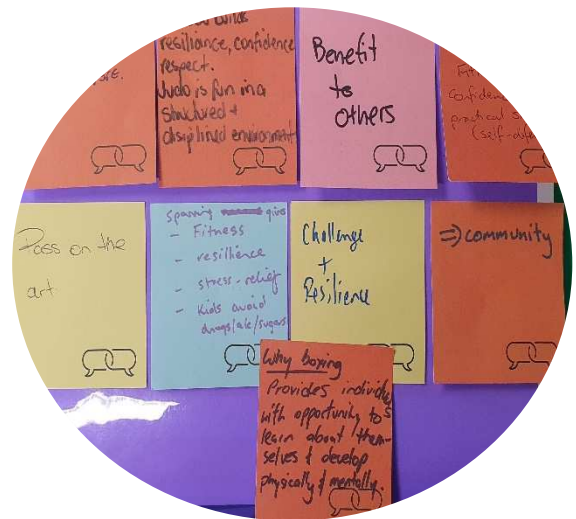 builds
resiliance, confidence
respect.
Judo is fun in a
structured +
disciplined environment
Benefit
to
others
confidence
practical
(self-def
Pass on the
art
Sparring give
- Fitness
- resillience
- stress-relief
- Kids avoid
drugs/alc/sugars
Challenge
+
Resilience
=> community
Why boxing
Provides individ
with opportunity to
learn about them-
selves & develop
physically & mentally.